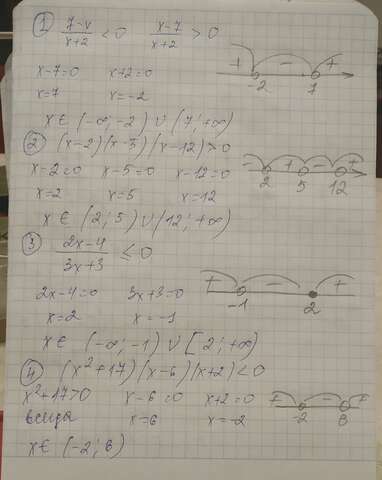 1 (7-x)/(x+2) < 0 (x-7)/(x+2) > 0
+ - +
-2 7
x-7=0 x+2=0
x=7 x=-2
x ∈ (-∞; -2) ∪ (7; +∞)
2 (x-2)(x-5)(x-12)>0
- + - +
2 5 12
x-2=0 x-5=0 x-12=0
x=2 x=5 x=12
x ∈ (2; 5) ∪ (12; +∞)
3 (2x-4)/(3x+3) ≤ 0
+ - +
-1 2
2x-4=0 3x+3=0
x=2 x=-1
x ∈ (-∞; -1) ∪ [2; +∞)
4 (x²+17)(x-6)(x+2)<0
+ - +
-2
x²+17>0 x-6=0 x+2=0
всегда x=6 x=-2
x ∈ (-2; 6)